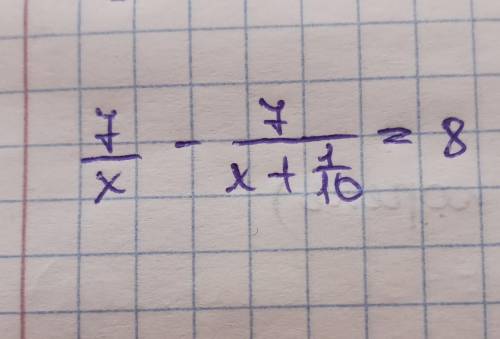 7/x - 7/(x + 1/10) = 8